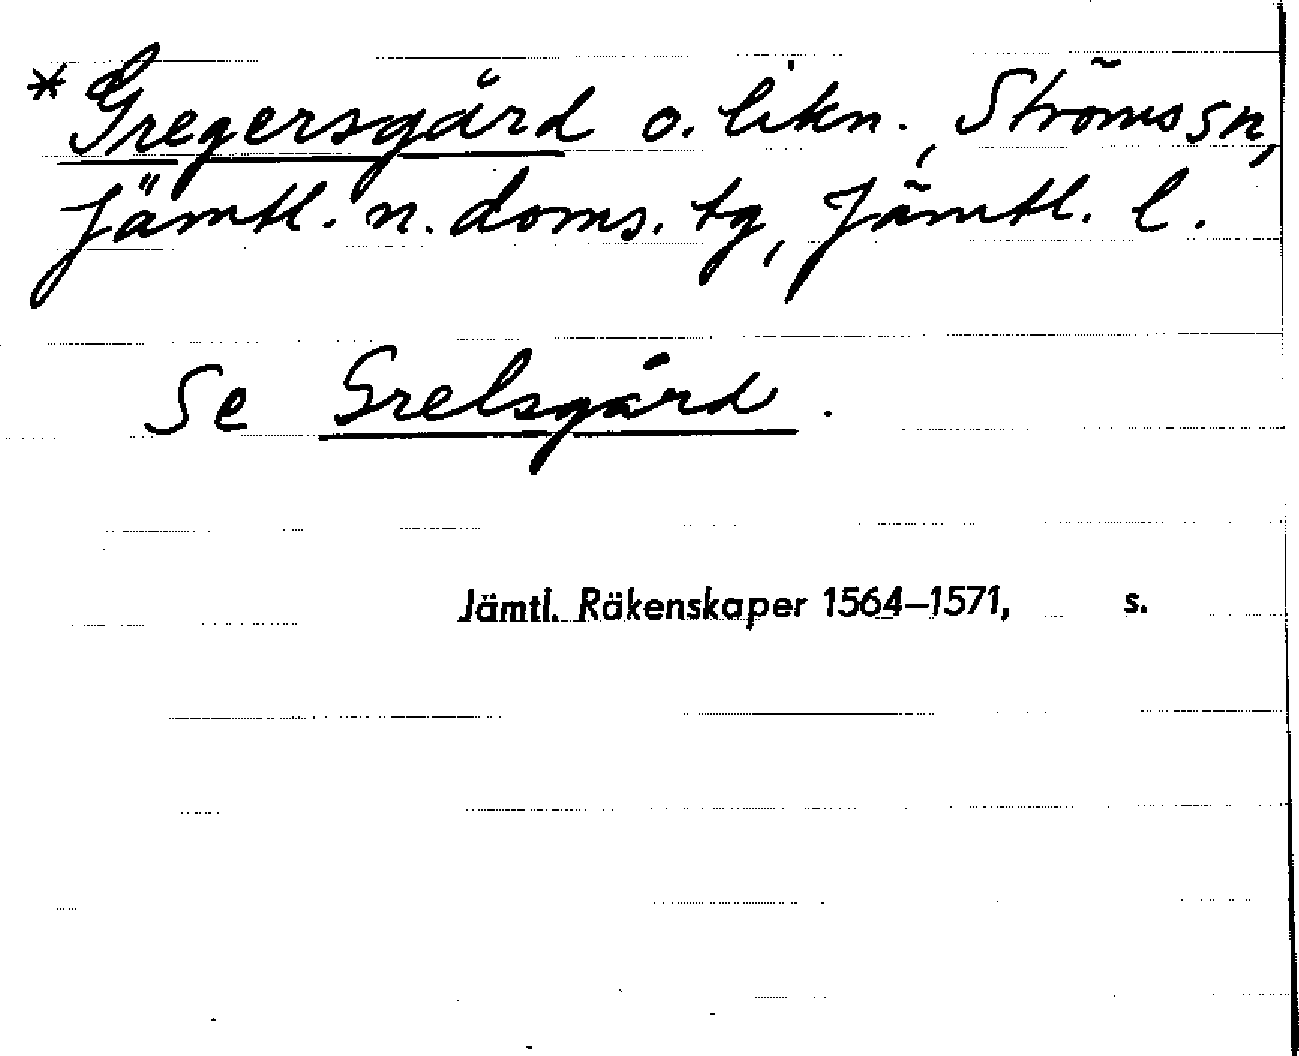 * Gregersgård o. likn., Ströms sn,
Jämtl. n. doms. tg, Jämtl. l.
Se Grelsgård.
Jämtl. Räkenskaper 1564–1571, s.